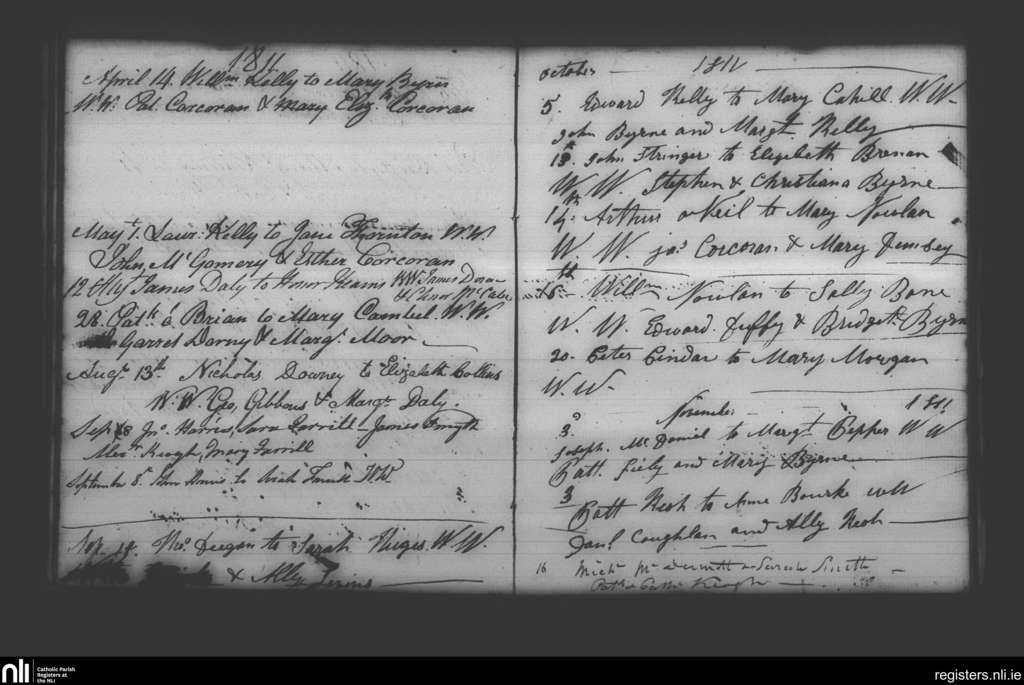 1811
April 14. Willm Kelly to Mary Byrn
W.W. Pat. Corcoran & Mary Elizth Corcoran
May 1. Lawr. Kelly to Jane Thornton W.W.
John Mc Gomery & Esther Corcoran
12 James Daly to Honor Kearns W.W James Doran
& Elinor McCabe
28. Patk ó Brian to Mary Cambel W.W.
Garret Dorny & Margt. Moor
Augt 13th. Nicholas Downey to Elizabeth Collins
W.W. Geo. Gibbons & Margt Daly.
Sep 8 Jno. Harris, Sara Farrill James Smyth
Keogh, Mary Farrill
September 8. John Harris to W.W.
Thos. Deegan to Sarah W.W.
& Ally
October 1811
5. Edward Kelly to Mary Cahill. W.W-
John Byrne and Margt. Kelly
13th. John Stringer to Elizebeth Brenan
W. W. Stephen & Christiana Byrne
14th. Arthur o Neil to Mary Nowlan
W. W. jas Corcoran & Mary Demsey
16th Willm Nowlan to Sally Bone
W. W. Edward Feffy & Bridget Byrn
20. Peter to Mary Morgan
W.W.
November 1811
3. Joseph Mc Daniel to Margt Pepper W W
Patt. Fiely and Mary Byrne
3 Patt Keoh to Anne Bourke
Coughlan and Ally Keoh
16 Michl Mc dermott Sarah Smith
Keogh
nli Catholic Parish
Registers at
the NLI
registers.nli.ie